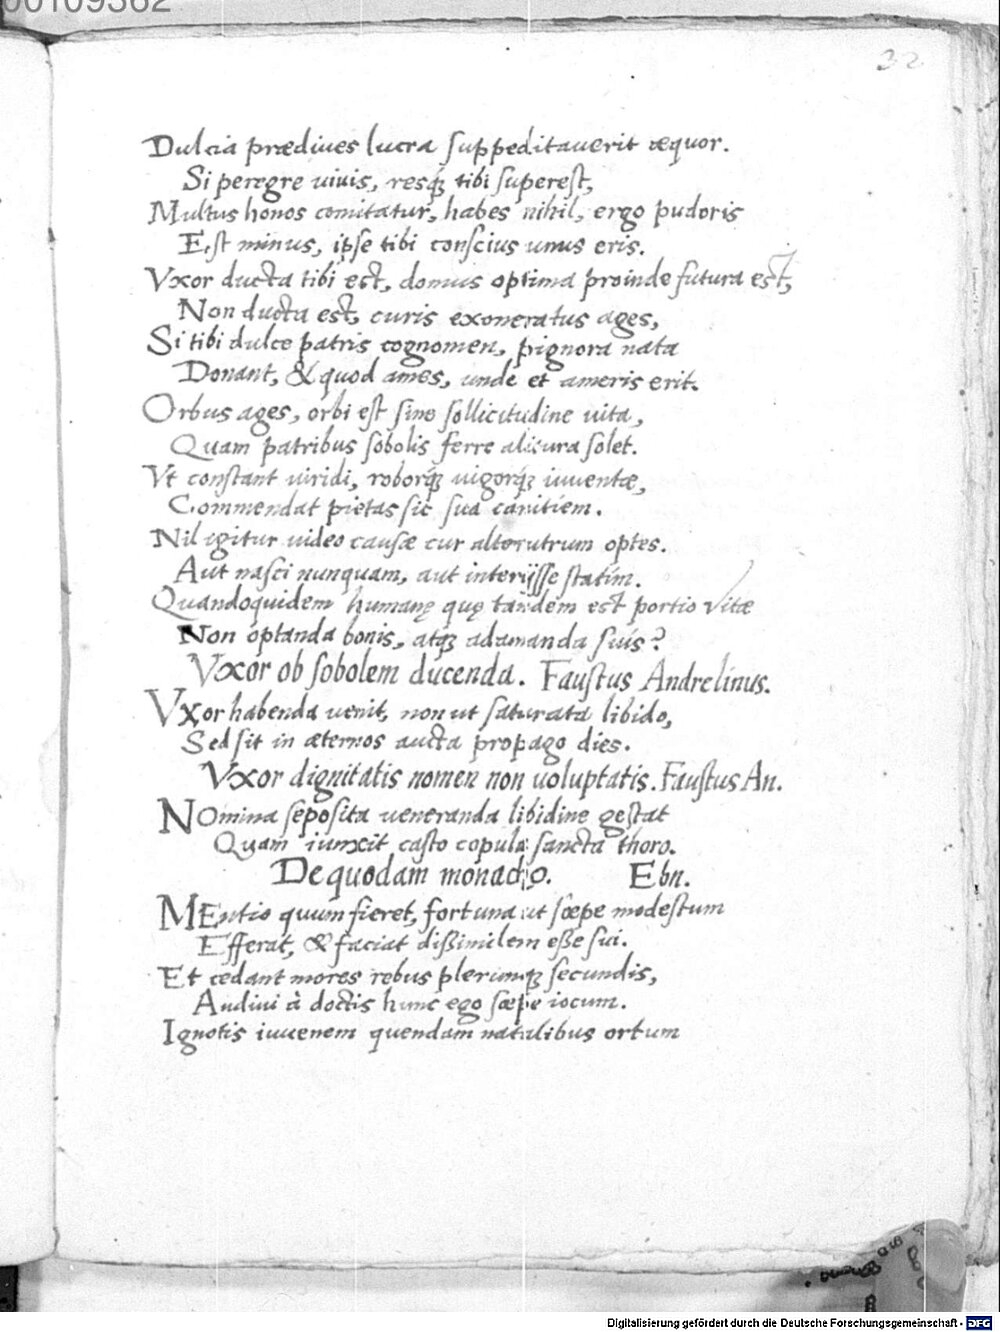 00109362
32
Dulcia prædiues lucra suppeditauerit æquor.
Si peregre uiuis, resq́; tibi superest,
Multus honos comitatur, habes nihil, ergo pudoris
Est minus, ipse tibi conscius unus eris.
Vxor ducta tibi est, domus optima proinde futura est,
Non ducta est, curis exoneratus ages,
Si tibi dulce patris cognomen, pignora nata
Donant, & quod ames, unde et ameris erit.
Orbus ages, orbi est sine sollicitudine uita,
Quam patribus sobolis ferre alitura solet.
Vt constant uiridi, roborq́; uigorq́; iuuentæ,
Commendat pietas sic sua canitiem.
Nil igitur uideo causæ cur alterutrum optes.
Aut nasci nunquam, aut interijsse statim.
Quandoquidem humanę quę tandem est portio vitæ
Non optanda bonis, atq; adamanda suis?
Vxor ob sobolem ducenda. Faustus Andrelinus.
Vxor habenda uenit, non ut saturata libido,
Sed sit in æternos aucta propago dies.
Vxor dignitatis nomen non uoluptatis. Faustus An.
NOmina seposita ueneranda libidine gestat
Quam iunxit casto copula sancta thoro.
De quodam monacho. Ebn.
MEntio quum fieret, fortuna ut sæpe modestum
Efferat, & faciat dißimilem eße sui.
Et cedant mores rebus plerumq; secundis,
Audiui à doctis hunc ego sæpe iocum.
Ignotis iuuenem quendam natalibus ortum
Digitalisierung gefördert durch die Deutsche Forschungsgemeinschaft - DFG